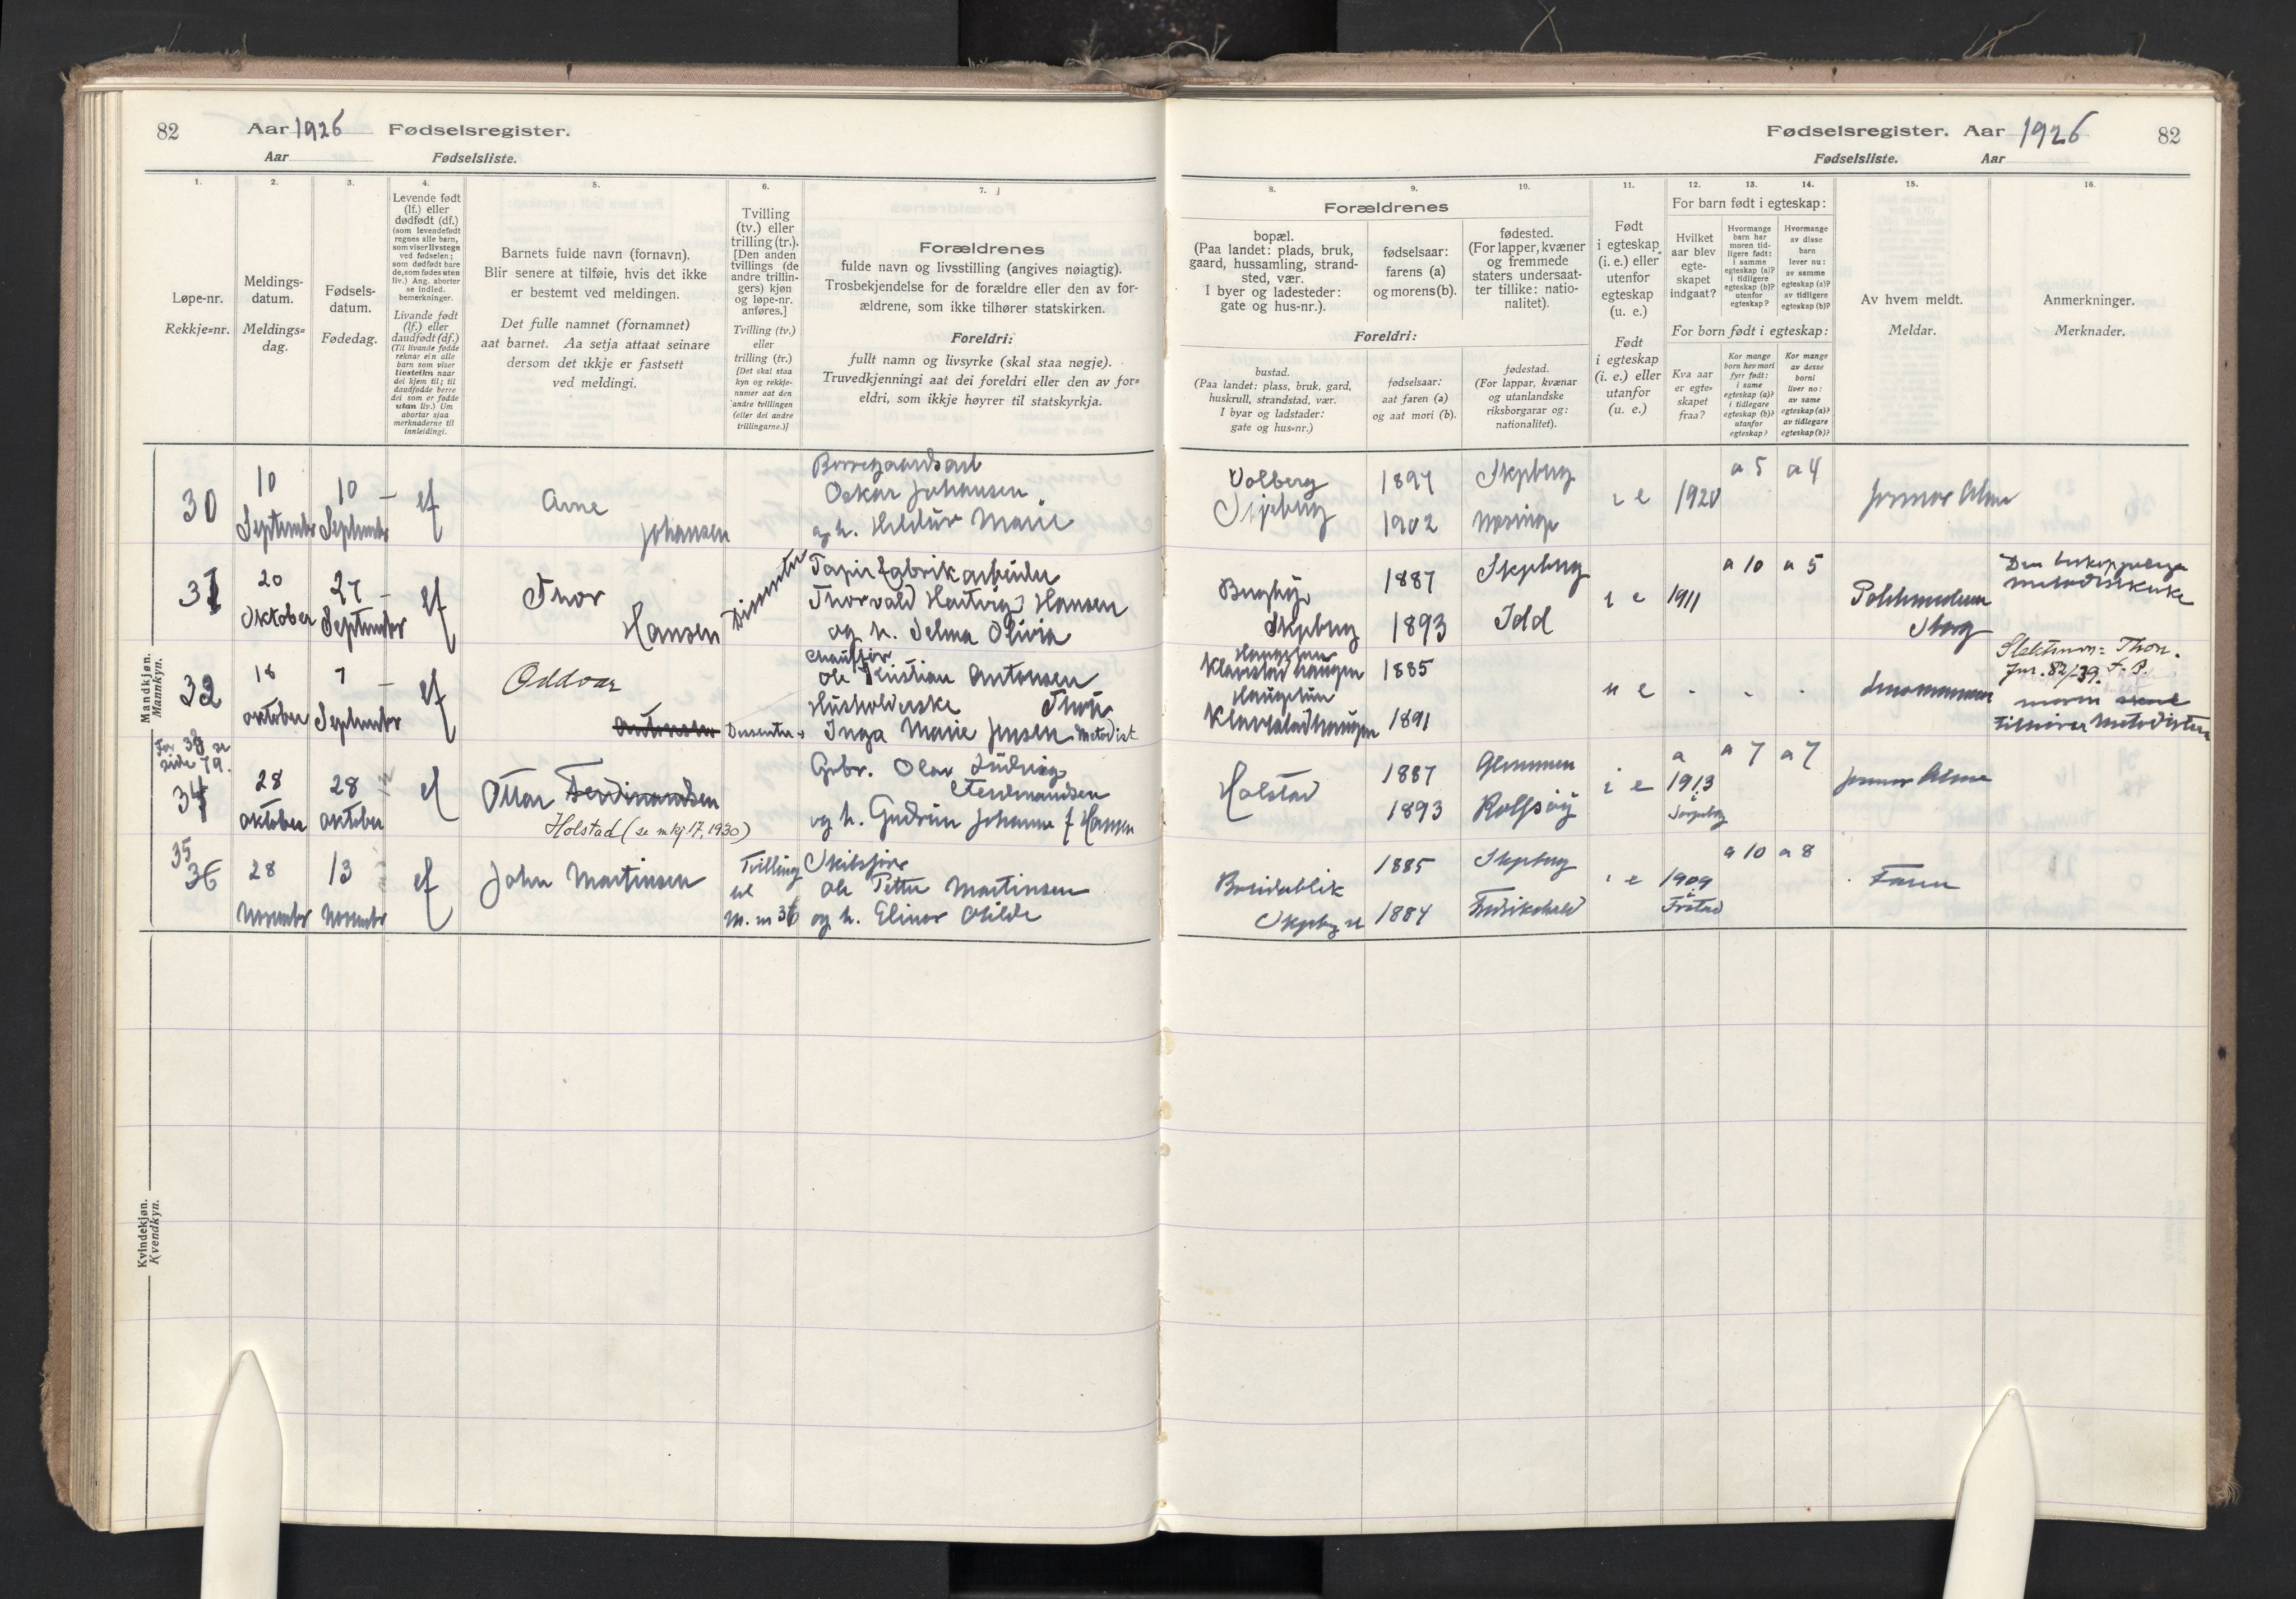 82 Aar 1926 Fødselsregister.
Aar Fødselsliste.
Fødselsregister. Aar 1926 82
Fødselsliste. Aar
1. 2. 3. 4. 5. 6. 7.
Løpe-nr.
Rekkje-nr.
Meldings-
datum.
Meldings-
dag.
Fødsels-
datum.
Fødedag.
Levende født
(lf.) eller
dødfødt (df.)
(som levendefødt
regnes alle barn,
som viser livstegn
ved fødselen;
som dødfødt bare
de, som fødes uten
liv.) Ang. aborter
se indled.
bemerkninger.
Livande født
(lf.) eller
daudfødt (df.)
(Til livande fødde
reknar ein alle
barn som viser
livsteikn naar
dei kjem til; til
daudfødde berre
dei som er fødde
utan liv.) Um
abortar sjaa
merknaderne til
innleidingi.
Barnets fulde navn (fornavn).
Blir senere at tilføie, hvis det ikke
er bestemt ved meldingen.
Det fulle namnet (fornamnet)
aat barnet. Aa setja attaat seinare
dersom det ikkje er fastsett
ved meldingi.
Tvilling
(tv.) eller
trilling (tr.).
[Den anden
tvillings (de
andre trillin-
gers) kjøn
og løpe-nr.
anføres.]
Tvilling (tv.)
eller
trilling (tr.)
[Det skal staa
kyn og rekkje-
numer aat den
andre tvillingen
(eller dei andre
trillingarne.)]
Forældrenes
fulde navn og livsstilling (angives nøiagtig).
Trosbekjendelse for de forældre eller den av for-
ældrene, som ikke tilhører statskirken.
Foreldri:
fullt namn og livsyrke (skal staa nøgje).
Truvedkjenningi aat dei foreldri eller den av for-
eldri, som ikkje høyrer til statskyrkja.
8. 9. 10. 11. 12. 13. 14. 15. 16.
Forældrenes
bopæl.
(Paa landet: plads, bruk,
gaard, hussamling, strand-
sted, vær.
I byer og ladesteder:
gate og hus-nr.).
fødselsaar:
farens (a)
og morens (b).
fødested.
(For lapper, kvæner
og fremmede
staters undersaat-
ter tillike: natio-
nalitet).
Foreldri:
bustad.
(Paa landet: plass, bruk, gard,
huskrull, strandstad, vær.
I byar og ladstader:
gate og hus-nr.)
fødselsaar:
aat faren (a)
og aat mori (b).
fødestad.
(For lappar, kvænar
og utanlandske
riksborgarar og:
nationalitet).
Født
i egteskap
(i. e.) eller
utenfor
egteskap
(u. e.)
Født
i egteskap
(i. e.) eller
utanfor
(u. e.)
For barn født i egteskap:
Hvilket
aar blev
egte-
skapet
indgaat?
Hvormange
barn har
moren tid-
ligere født:
i samme
egteskap (a)?
i tidligere
egteskap (b)?
utenfor
egteskap?
Hvormange
av disse
barn
lever nu:
av samme
egteskap (a)?
av tidligere
egteskap (b)?
For born født i egteskap:
Kva aar
er egte-
skapet
fraa?
Kor mange
born hev mori
fyrr født:
i same
egteskap (a)?
i tidlegare
egteskap (b)?
utanfor
egteskap?
Kor mange
av desse
borni
liver no:
av same
egteskap (a)?
av tidlegare
egteskap (b)?
Av hvem meldt.
Meldar.
Anmerkninger.
Merknader.
Mandkjøn.
Mannkyn.
30 10 September 10 September lf Arne Johansen
Oskar Johansen
og h. Hildur Marie
Volberg
1897
1902
i e 1920 a 5 a 4
31 20 Oktober 27 September lf Thor Hansen Dissenter
Papirfabrikarbeider
Thorvald Hartvig Hansen
og h. Selma Olivia
1887
1893 Idd
i e 1911 a 10 a 5
32 18 oktober 7 September lf Oddvar Antonsen Dissenter
Chauffør
Ole Kristian Antonsen
Husholderske Thon
Inga Marie Jensen Metodist
Haugetun
Klavestadhaugen 1885
Haugetun
Klavestadhaugen 1891
u e - - -
Slektsnavn: Thon.
Jnr. 82/39. F. P.
moren
tilhører Metodisten
For 33 se
side 79.
34 28 oktober 28 oktober lf Ottar Ferdinandsen
Holstad (se mkj 17, 1930)
Gbr. Olav Ludvig
Ferdinandsen
og h. Gudrun Johanne f Hansen
Holstad
1887 Glemmen
1893 Rolfsøy
i e 1913 a 7 a 7
35
36 28 November 13 November lf John Martinsen
Tvilling
til
M. nr 36
Ole Petter Martinsen
og h. Elinor Otilde
1885
1884 Fredrikshald
i e 1909 a 10 a 8
Faren
Kvindekjøn.
Kvendkyn.